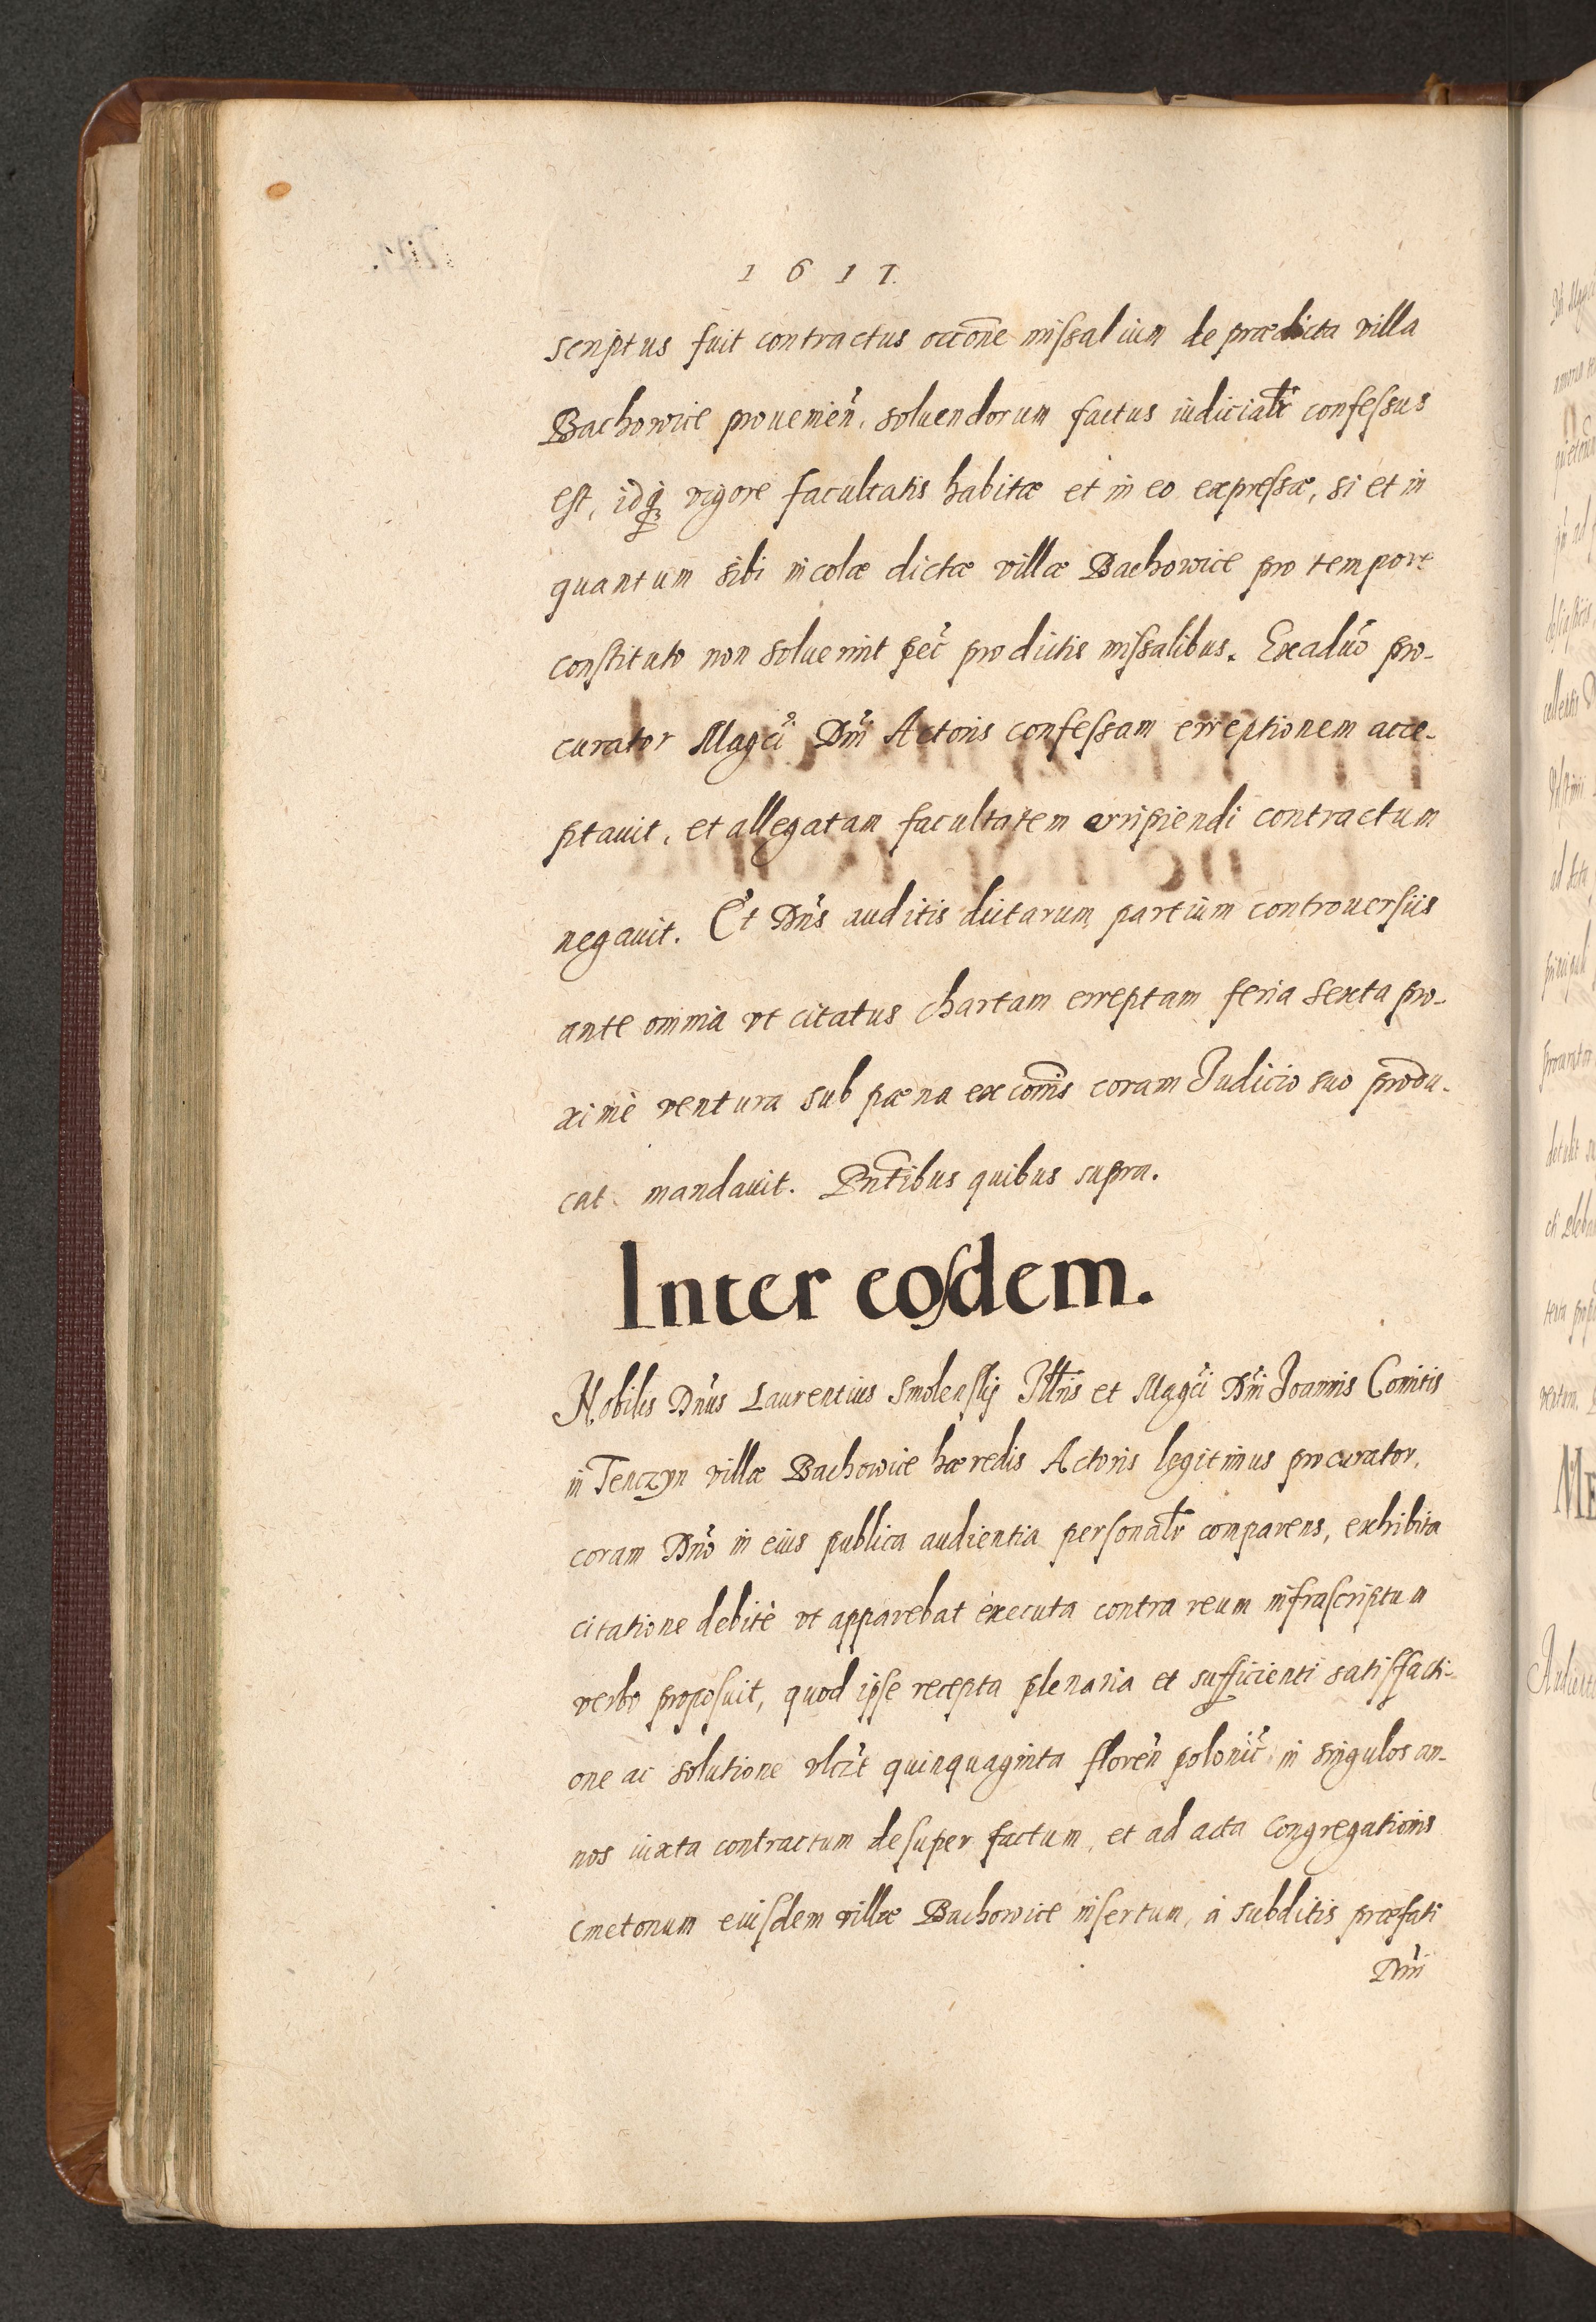 1617.
scriptus fuit contractus occōne missalium de prædicta villa
Bachowice prouenien̄, soluendorum factus iudicialr̄ confessus
est, idq̃ vigore facultatis habitæ et in eo expressæ, si et in
quantum sibi incolæ dictæ villæ Bachowice pro tempore
constituto non soluerint pec̄ pro dictis missalibus. Exaduō pro-
curator Magci Dn̄i Actoris confessam erreptionem acce-
ptauit, et allegatam facultatem arripiendi contractum
negauit. Et Dn̄s auditis dictarum partium controuersiis
ante omnia vt citatus chartam erreptam feria sexta pro-
ximè ventura sub pæna excōmis coram Judicio suo produ-
cat mandauit. Pn̄tibus quibus supra.
Inter eosdem.
Nobilis Dn̄us Laurentius Smolenskj Illris et Magci Dn̄i Joannis Comitis
in Tenczyn villæ Bachowice hæredis Actoris legitimus procurator,
coram Dn̄o in eius publica audientia personalr̄ comparens, exhibita
citatione debitè vt apparebat executa contra reum infrascriptum
verbo proposuit, quod ipse recepta plenaria et sufficienti satisfacti-
one ac solutione vlczt quinquaginta floren̄ polonic̄ in singulos an-
nos iuxta contractum desuper factum, et ad acta Congregationis
cmetonum eiusdem villæ Bachowice insertum, à subditis præfati
Dn̄i